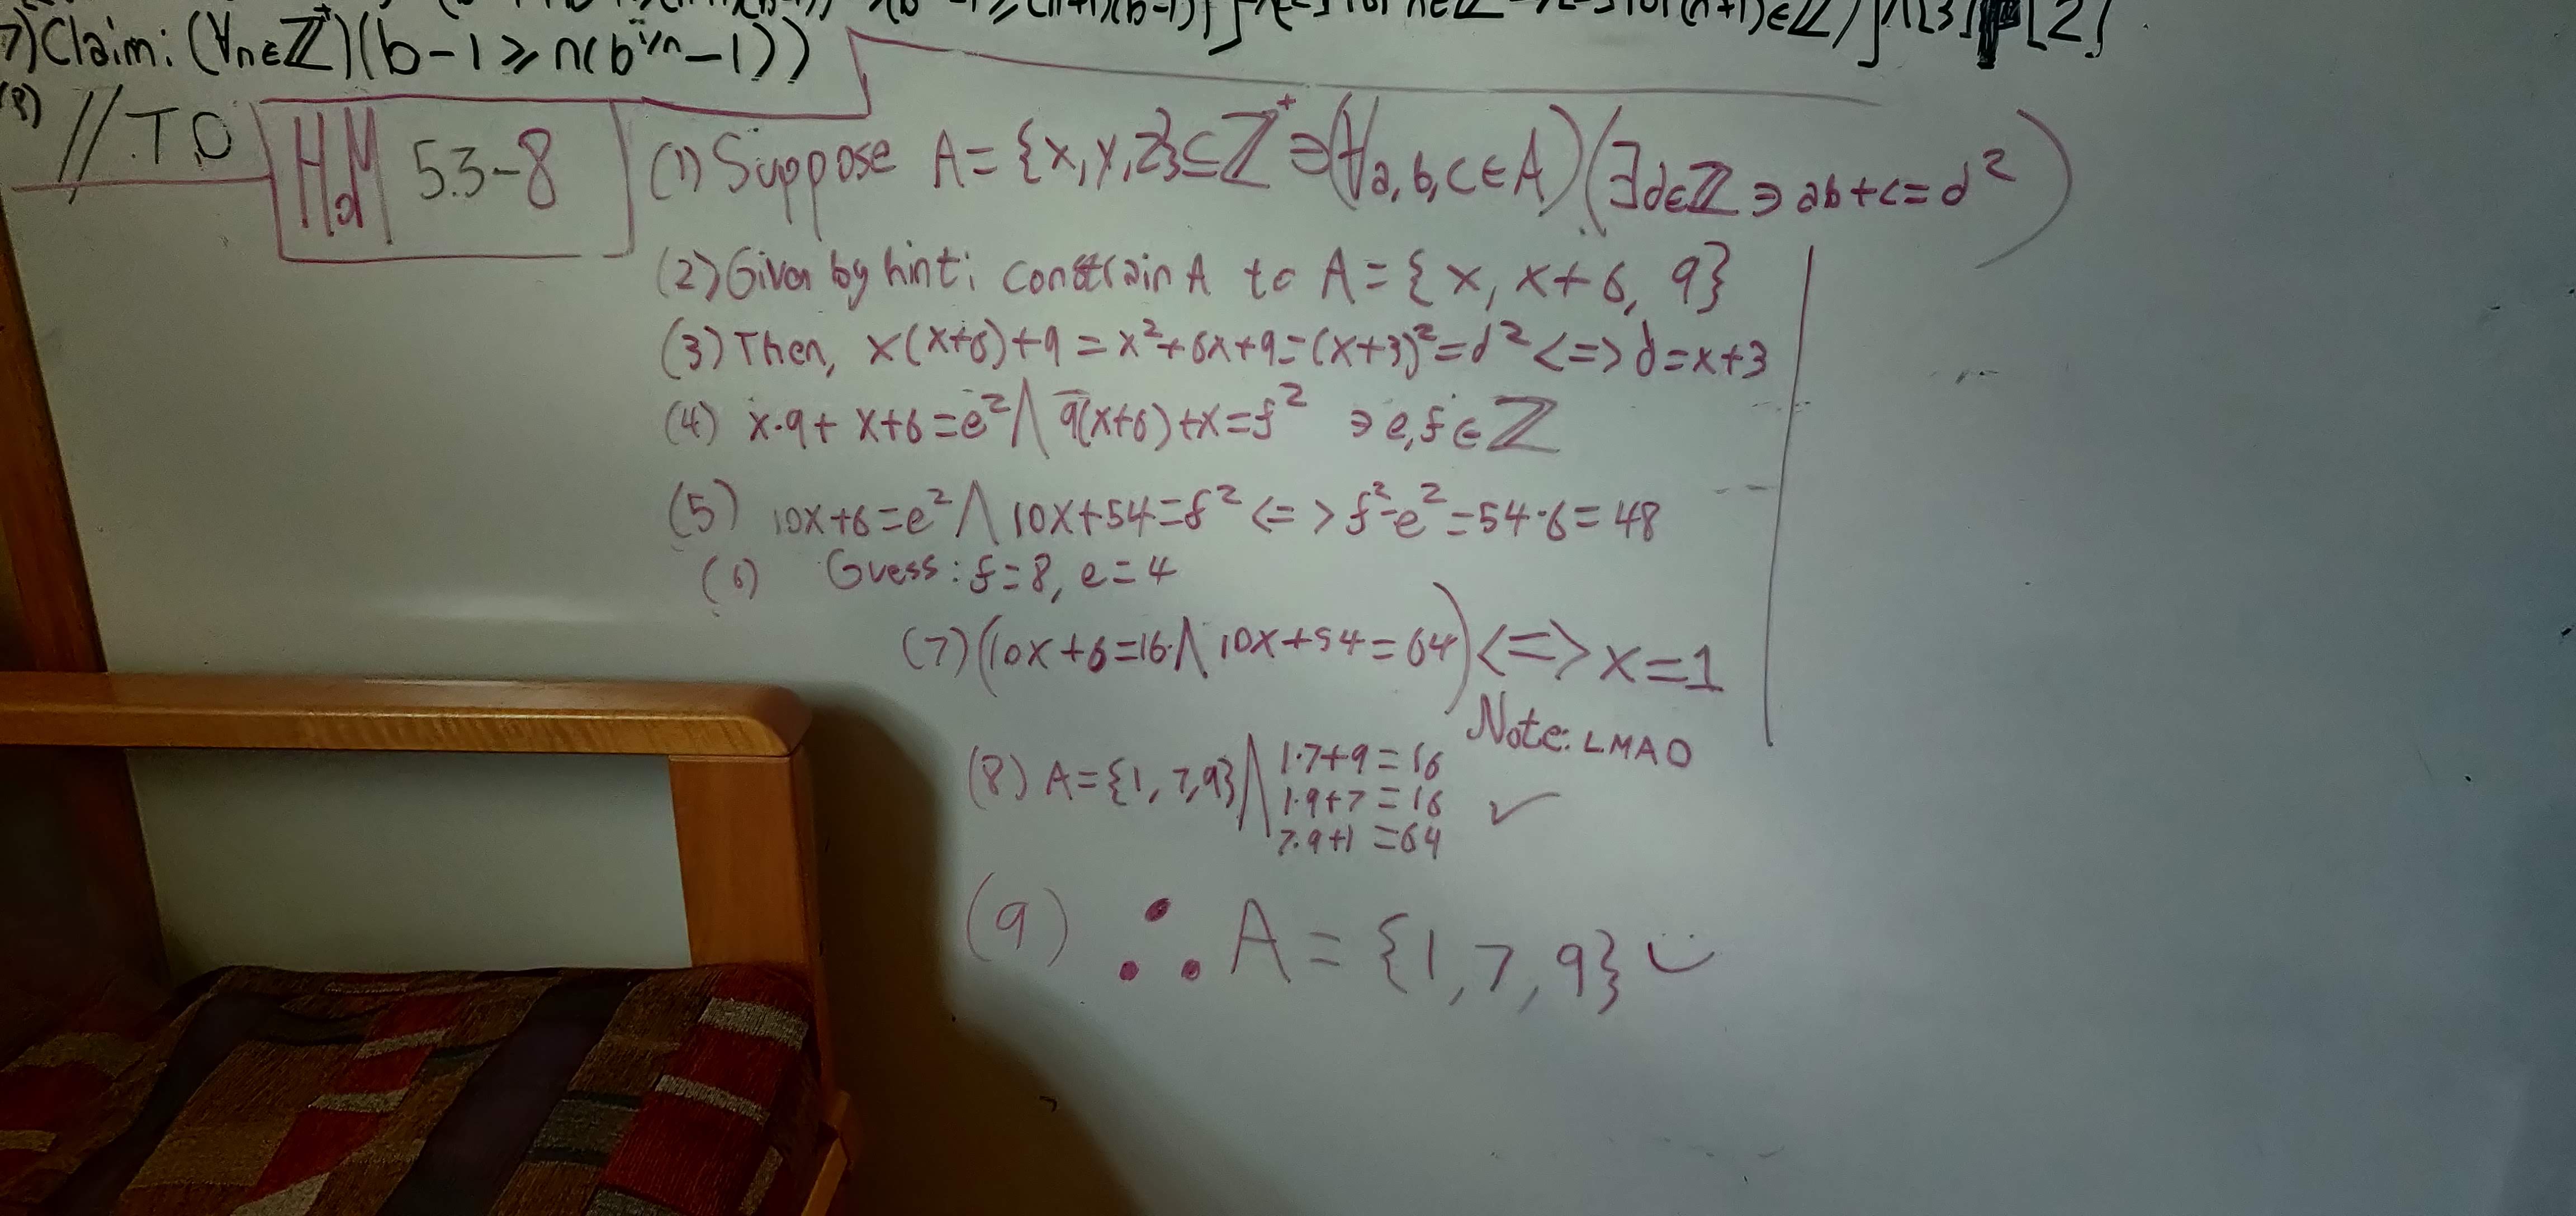 7) Claim: (∀n∈ℤ⁺)(b-1 ⩾ n(b^{1/n}-1))
// T.O
HdM 5.3-8
(1) Suppose A={x,y,z}⊆ℤ⁺∋(∀a,b,c∈A)(∃d∈ℤ∋ab+c=d²)
(2) Given by hint: constrain A to A={x, x+6, 9}
(3) Then, x(x+6)+9=x²+6x+9=(x+3)²=d²<=>d=x+3
(4) x·9+x+6=e²∧9(x+6)+x=f² ∋e,f∈ℤ
(5) 10x+6=e²∧10x+54=f²<=>f²-e²=54-6=48
(6) Guess: f=8, e=4
(7) (10x+6=16∧10x+54=64)<=>x=1
Note: LMAO
(8) A={1,7,9}∧ 1·7+9=16
1·9+7=16 ✓
7·9+1=64
(9) ∴ A={1,7,9}